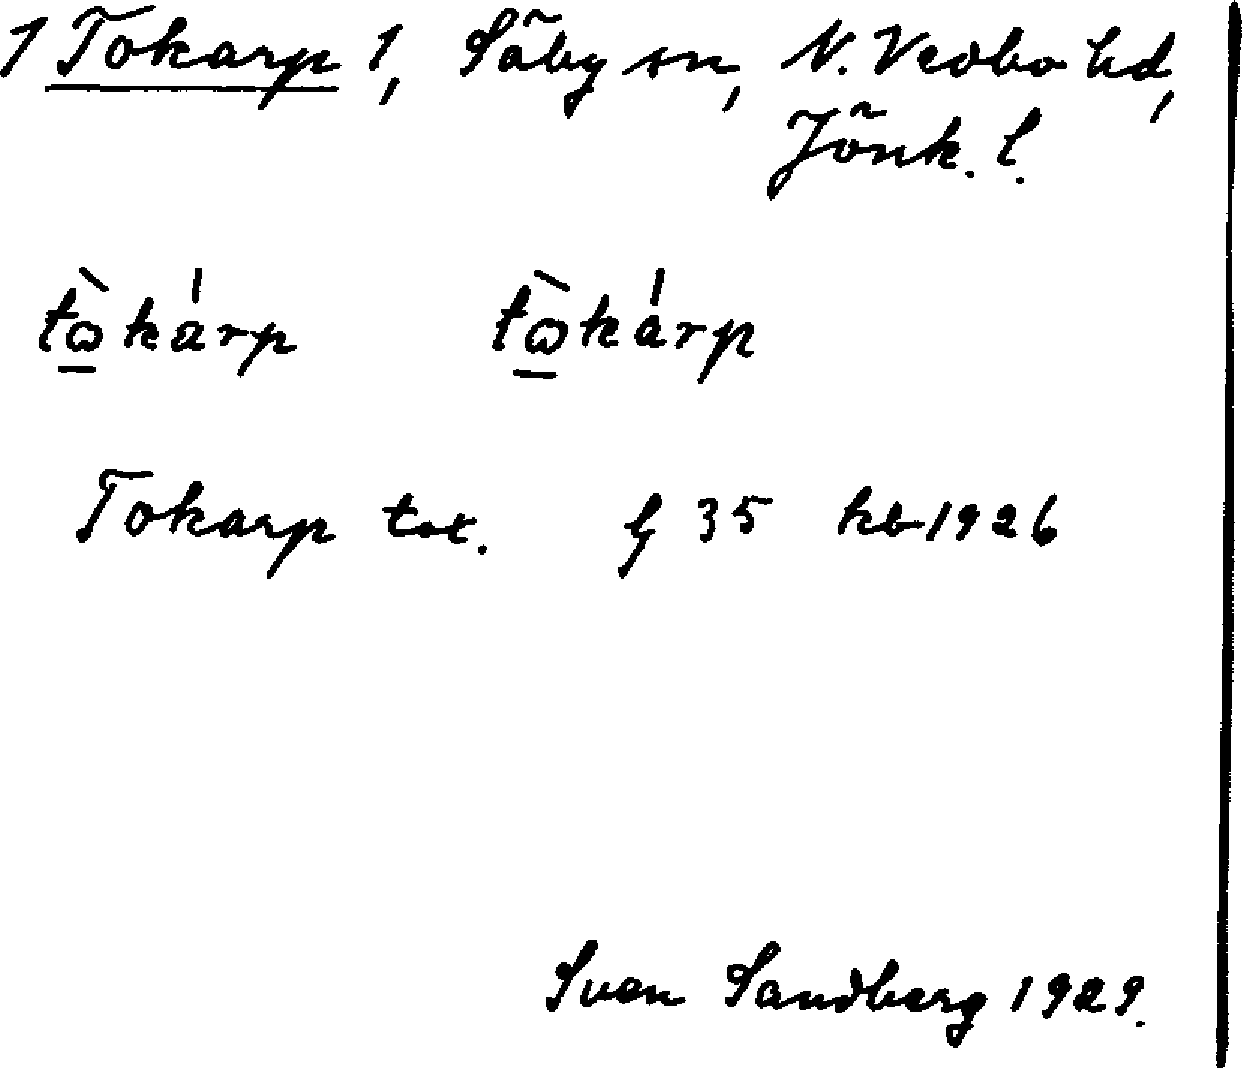 1 Tokarp 1, Säby sn, N. Vedbo hd,
Jönk. l.
tὼ̲kárp tὼ̲kárp
Tokarp tot. § 35 kb 1926
Sven Sandberg 1929.